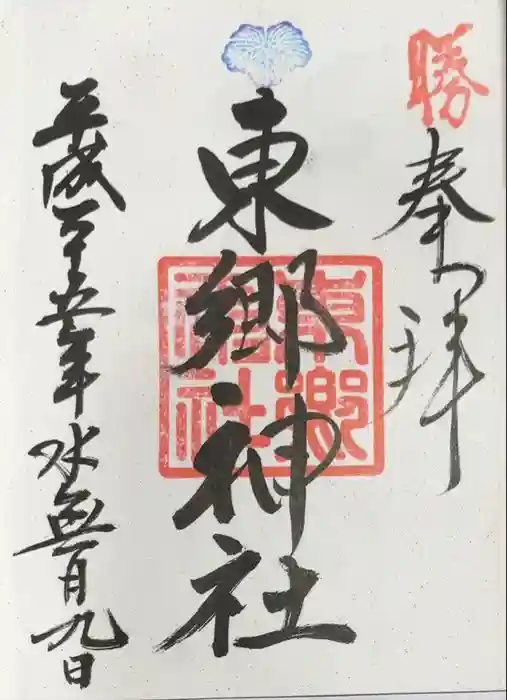 勝
奉拝
東郷神社
東郷神社
平成二十五年水無月九日